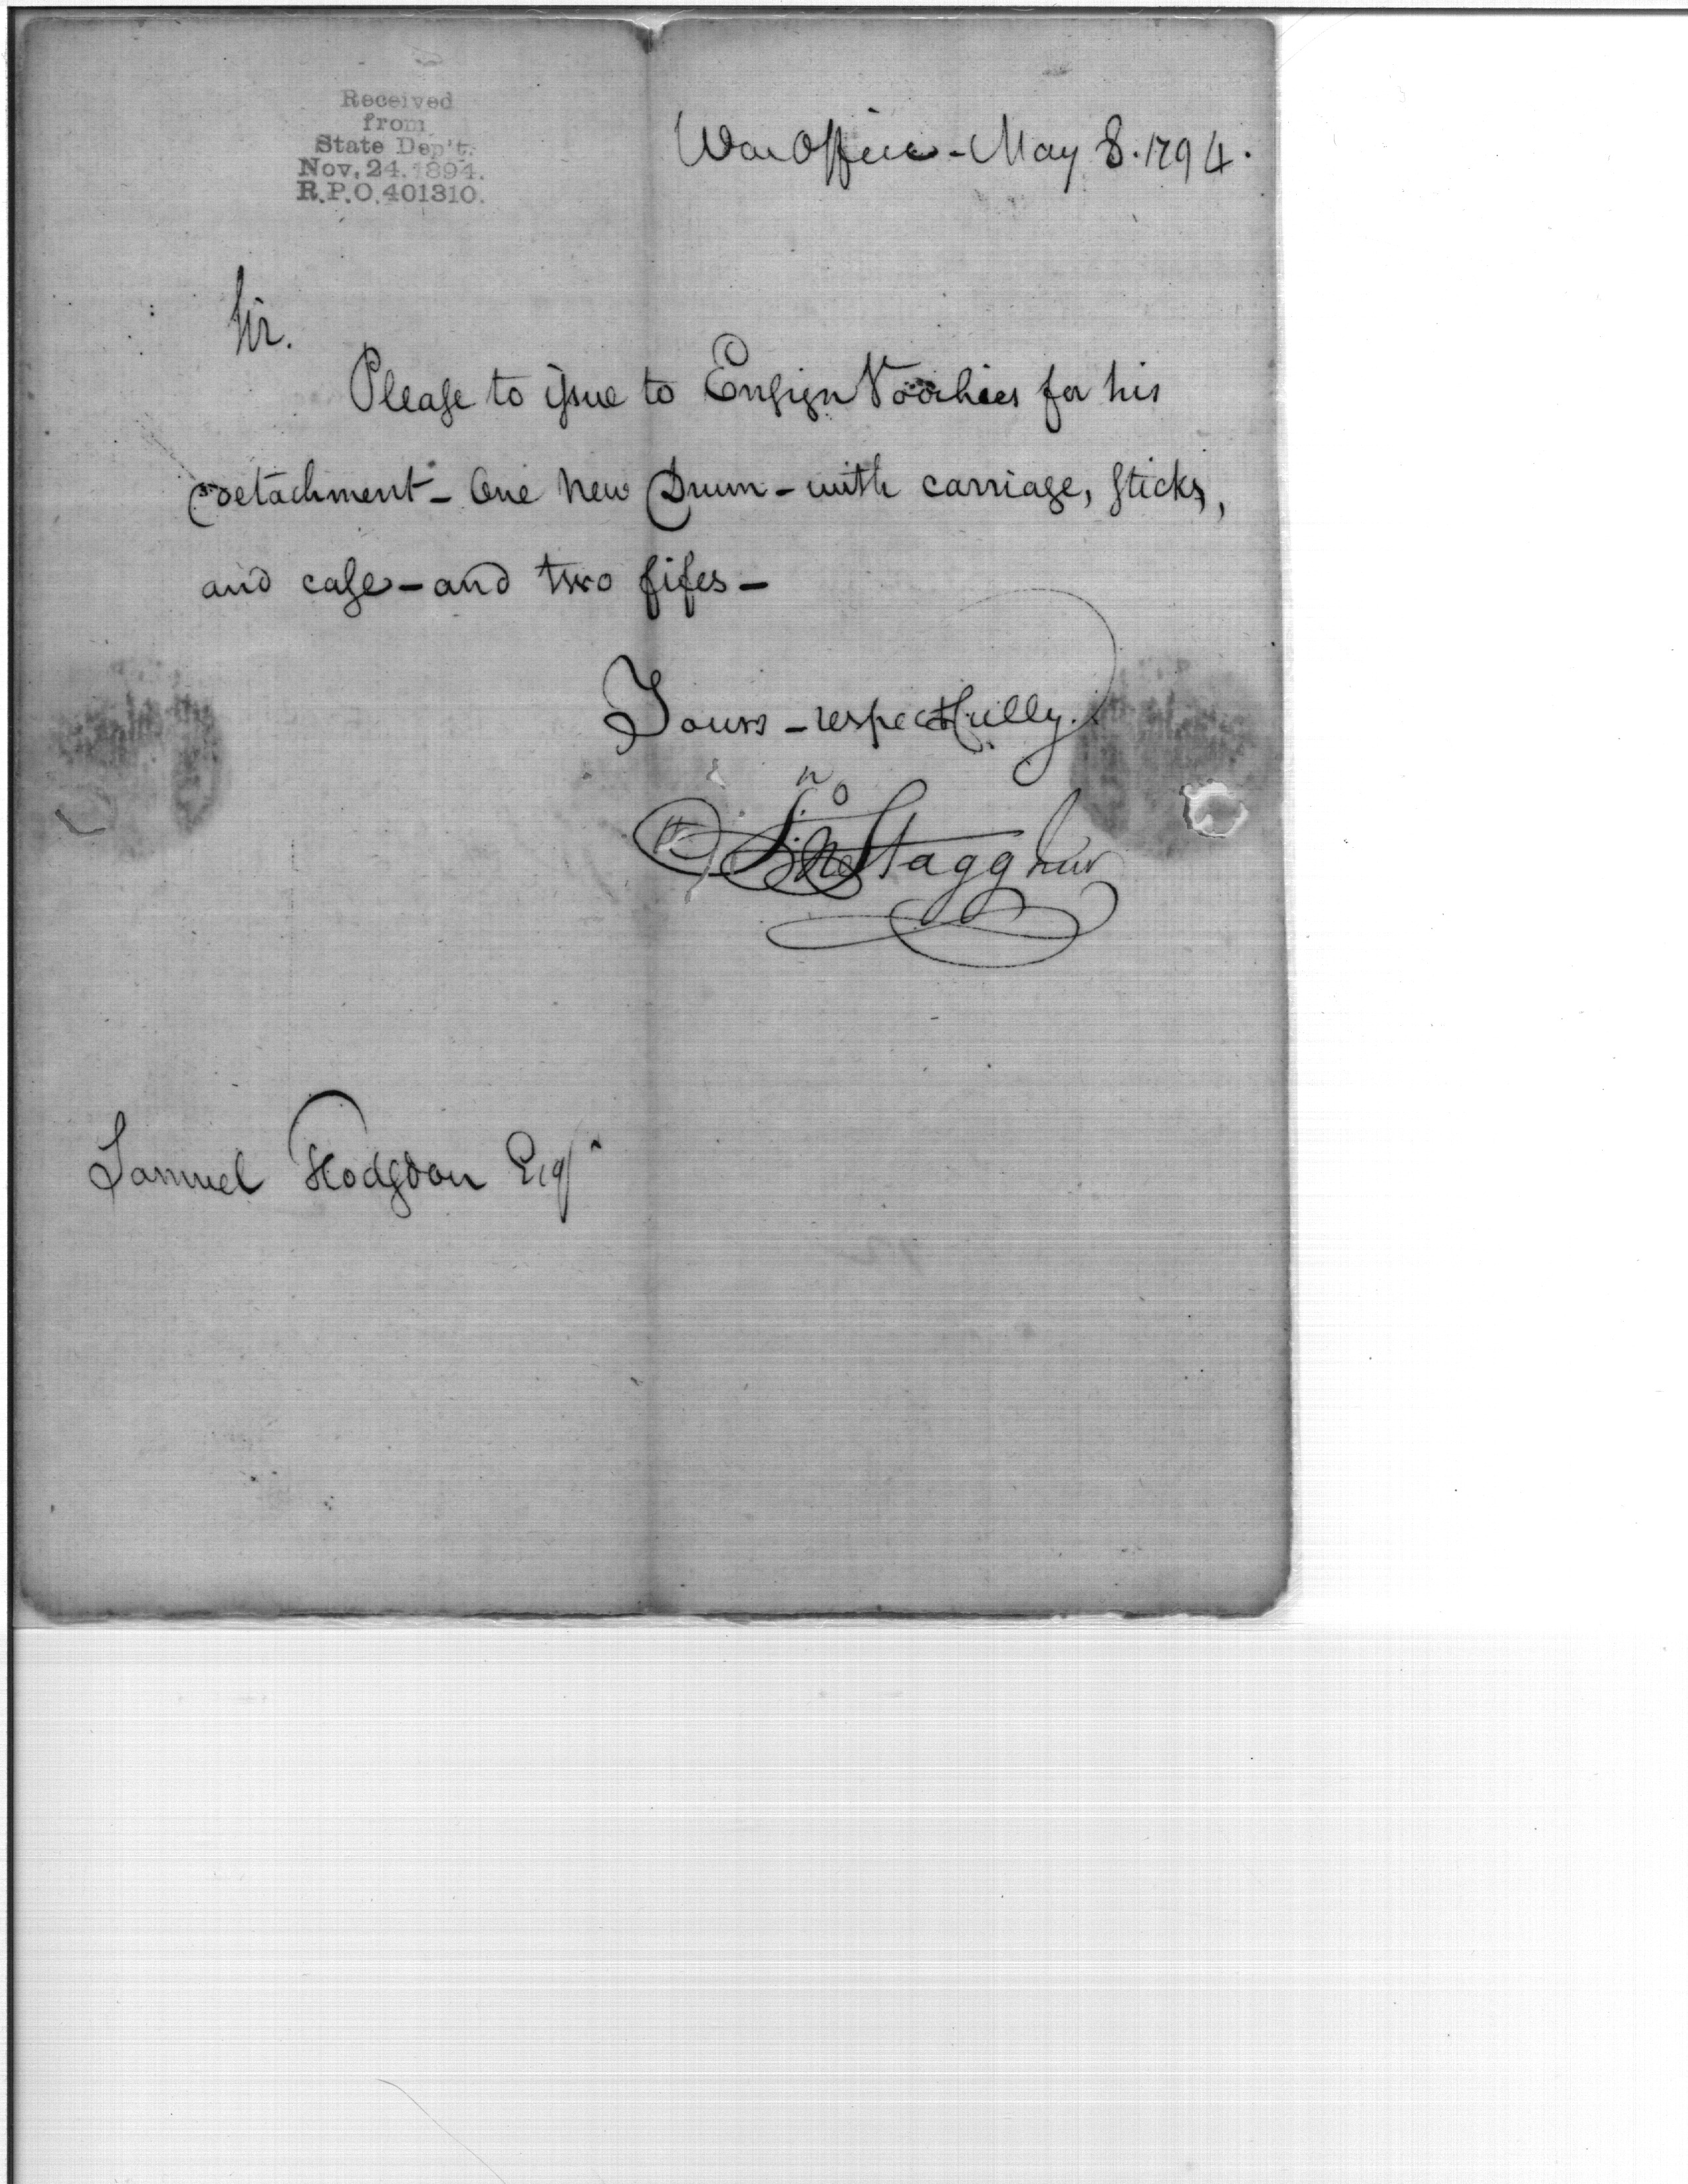 Received
from
State Dep't.
Nov. 24. 1894.
R.P.O. 401310.
War Office - May 8. 1794.
Sir.
Please to issue to Ensign Voorhees for his
Detachment - One new Drum - with carriage, sticks,
and case - and two fifes -
Yours - respectfully.
Jno Stagg Junr
Samuel Hodgdon Esqr